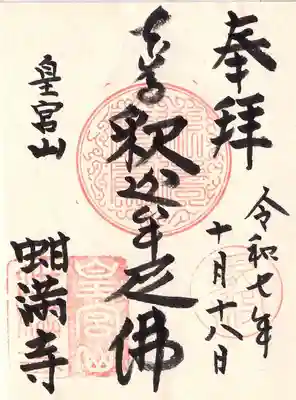 奉拝
令和七年
十月十八日
本尊 釈迦牟尼佛
皇宮山
蚶満寺
皇宮山